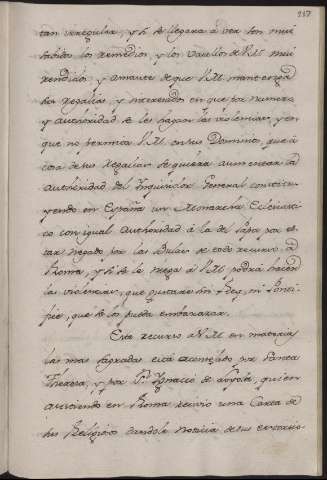 217
tan irregular, y si se llegara à ver son mui
los remedios, y los Vasallos de V.M. mui
rendidos, y amantes de que V.M. mantenga
las regalias, y interesados en que por numero
y authoridad se les hagan las violencias, y en
que no permita V.M. en sus Dominios, que à
costa de sus regalias se quiera aumentar la
authoridad del Inquisidor General constitu-
yendo en España un Monarcha Eclesiasti-
co con igual Authoridad à la del Papa por es-
tar negado por las Bulas de todo recurso, à
Roma, y si se le niega à V.M. podrà hacer
las violencias, que quisiere sin Rey, ni Ponti-
fice, que se lo pueda embarazar.
Este recurso à V.M. en materias
las mas sagradas està aconsejado por Santa
Theresa, y por Sn. Ignacio de Loyola, quien
asistiendo en Roma recivio una Carta de
sus Religiosos dandole noticia de sus